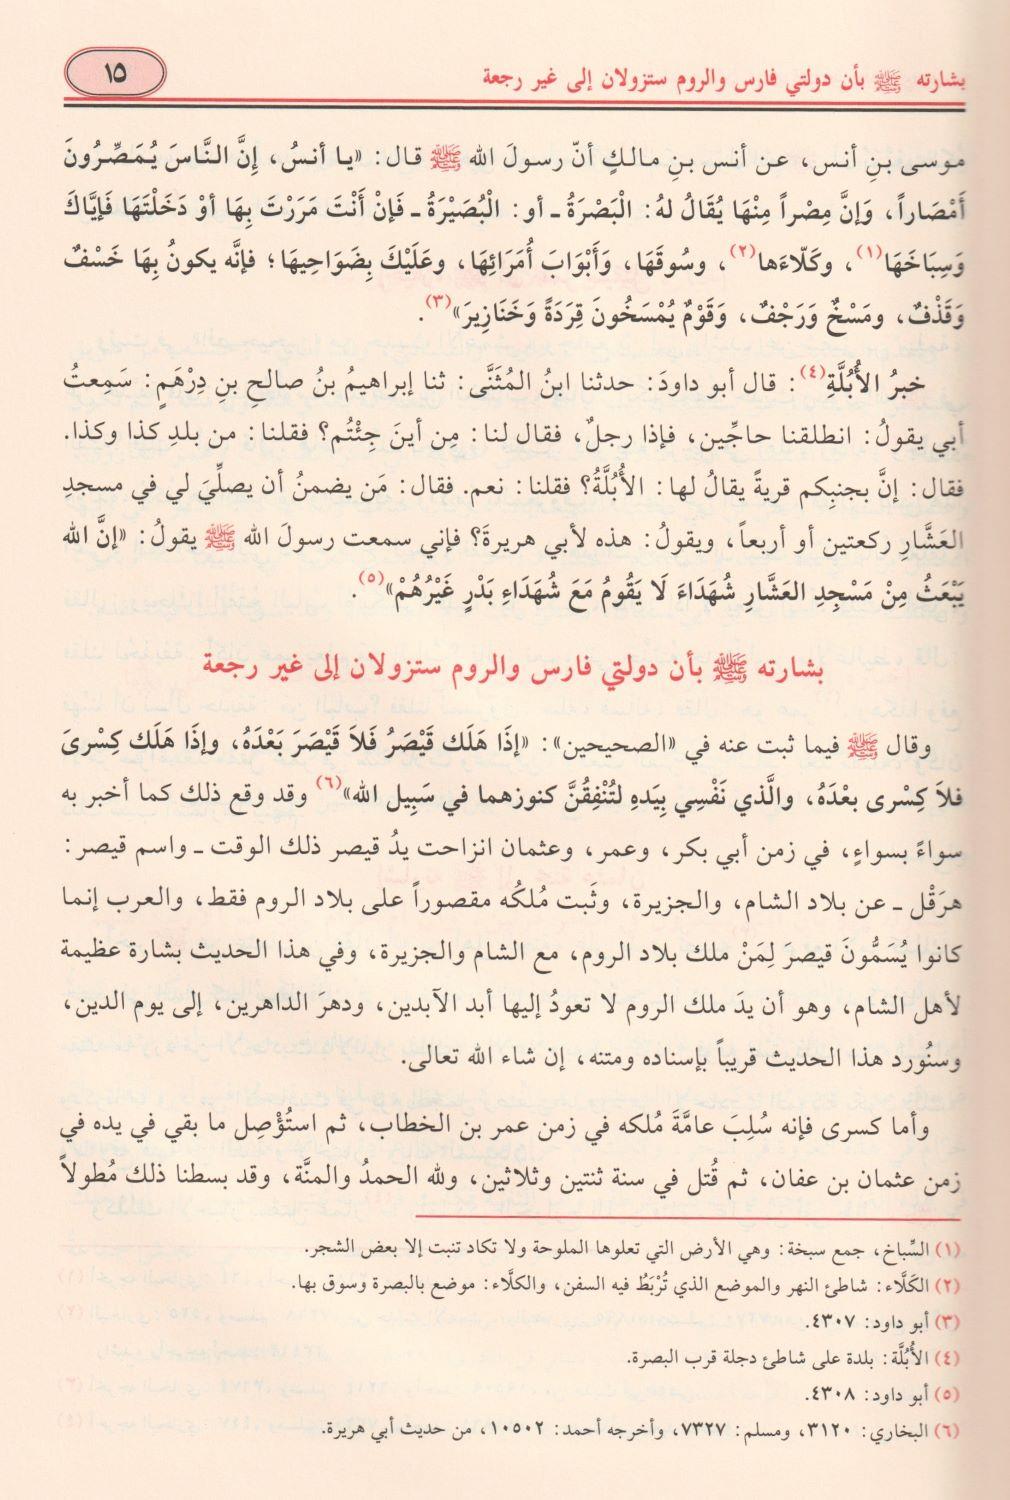 بشارته ﷺ بأن دولتي فارس والروم ستزولان إلى غير رجعة
١٥
موسى بنِ أنس، عن أنس بنِ مالكٍ أنّ رسولَ الله ﷺ قال: «يا أنسُ، إِنَّ النَّاسَ يُمَصِّرُونَ
أَمْصَاراً، وَإنَّ مِصْراً مِنْهَا يُقَالُ لهُ: الْبَصْرَةُ ـ أو: الْبُصَيْرَةُ ـ فَإنْ أَنْتَ مَرَرْتَ بِهَا أوْ دَخَلْتَهَا فَإيَّاكَ
وَسِبَاخَهَا(١)، وكَلّاءَها(٢)، وسُوقَهَا، وَأَبْوَابَ أُمَرَائِهَا، وعَلَيْكَ بِضَوَاحِيهَا؛ فإنَّه يكونُ بِهَا خَسْفٌ
وَقَذْفٌ، ومَسْخٌ وَرَجْفٌ، وَقَوْمٌ يُمْسَخُونَ قِرَدَةً وَخَنَازِيرَ»(٣).
خبرُ الأُبُلَّةِ(٤): قال أبو داودَ: حدثنا ابنُ المُثَنَّى: ثنا إبراهيمُ بنُ صالحِ بنِ دِرْهَمٍ: سَمِعتُ
أبي يقولُ: انطلقنا حاجِّين، فإذا رجلٌ، فقال لنا: مِن أينَ جِئْتُم؟ فقلنا: من بلدِ كذا وكذا.
فقال: إنَّ بجنبِكم قريةً يقالُ لها: الأُبُلَّةُ؟ فقلنا: نعم. فقال: مَن يضمنُ أن يصلِّيَ لي في مسجدِ
العَشَّارِ ركعتين أو أربعاً، ويقولُ: هذه لأبي هريرةَ؟ فإني سمعت رسولَ الله ﷺ يقولُ: «إنَّ الله
يَبْعَثُ مِنْ مَسْجِدِ العَشَّارِ شُهَدَاءَ لَا يَقُومُ مَعَ شُهَدَاءِ بَدْرٍ غَيْرُهُمْ»(٥).
بشارته ﷺ بأن دولتي فارس والروم ستزولان إلى غير رجعة
وقال ﷺ فيما ثبت عنه في «الصحيحين»: «إذَا هَلَك قَيْصَرُ فَلاَ قَيْصَرَ بَعْدَهُ، وإذَا هَلَك كِسْرىَ
فلاَ كِسْرى بعْدَهُ، والَّذي نَفْسِي بِيَدهِ لتُنْفِقُنَّ كنوزهما في سَبِيل الله»(٦) وقد وقع ذلك كما أخبر به
سواءً بسواءٍ، في زمن أبي بكر، وعمر، وعثمان انزاحت يدُ قيصر ذلك الوقت ـ واسم قيصر:
هرَقْل ـ عن بلاد الشام، والجزيرة، وثَبت مُلكُه مقصوراً على بلاد الروم فقط، والعرب إنما
كانوا يُسَمُّونَ قيصرَ لِمَنْ ملك بلاد الروم، مع الشام والجزيرة، وفي هذا الحديث بشارة عظيمة
لأهل الشام، وهو أن يدَ ملك الروم لا تعودُ إليها أبد الآبدين، ودهرَ الداهرين، إلى يوم الدين،
وسنُورد هذا الحديث قريباً بإسناده ومتنه، إن شاء الله تعالى.
وأما كسرى فإنه سُلِبَ عامَّةَ مُلكه في زمن عمر بن الخطاب، ثم استؤْصِل ما بقي في يده في
زمن عثمان بن عفان، ثم قُتل في سنة ثنتين وثلاثين، ولله الحمدُ والمنَّة، وقد بسطنا ذلك مُطولاً
(١) السِّباخ، جمع سبخة: وهي الأرض التي تعلوها الملوحة ولا تكاد تنبت إلا بعض الشجر.
(٢) الكَلَّاء: شاطئ النهر والموضع الذي تُرْبَطُ فيه السفن، والكلَّاء: موضع بالبصرة وسوق بها.
(٣) أبو داود: ٤٣٠٧.
(٤) الأُبُلَّة: بلدة على شاطئ دجلة قرب البصرة.
(٥) أبو داود: ٤٣٠٨.
(٦) البخاري: ٣١٢٠، ومسلم: ٧٣٢٧، وأخرجه أحمد: ١٠٥٠٢، من حديث أبي هريرة.